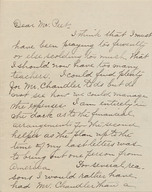 Dear Mr. Peet:
I think that I must
have been praying too fervently
or else working too much, that
I should now have too many
teachers. I could find plenty
for Mr. Chandler to do but do
not see how we could manage
the expenses. I am entirely in
the dark as to the financial
arrangements for the summer
helper as the plan up to the
time of my last letters was
to bring out one person from
America. For several rea
sons I would rather have
had Mr. Chandler than a